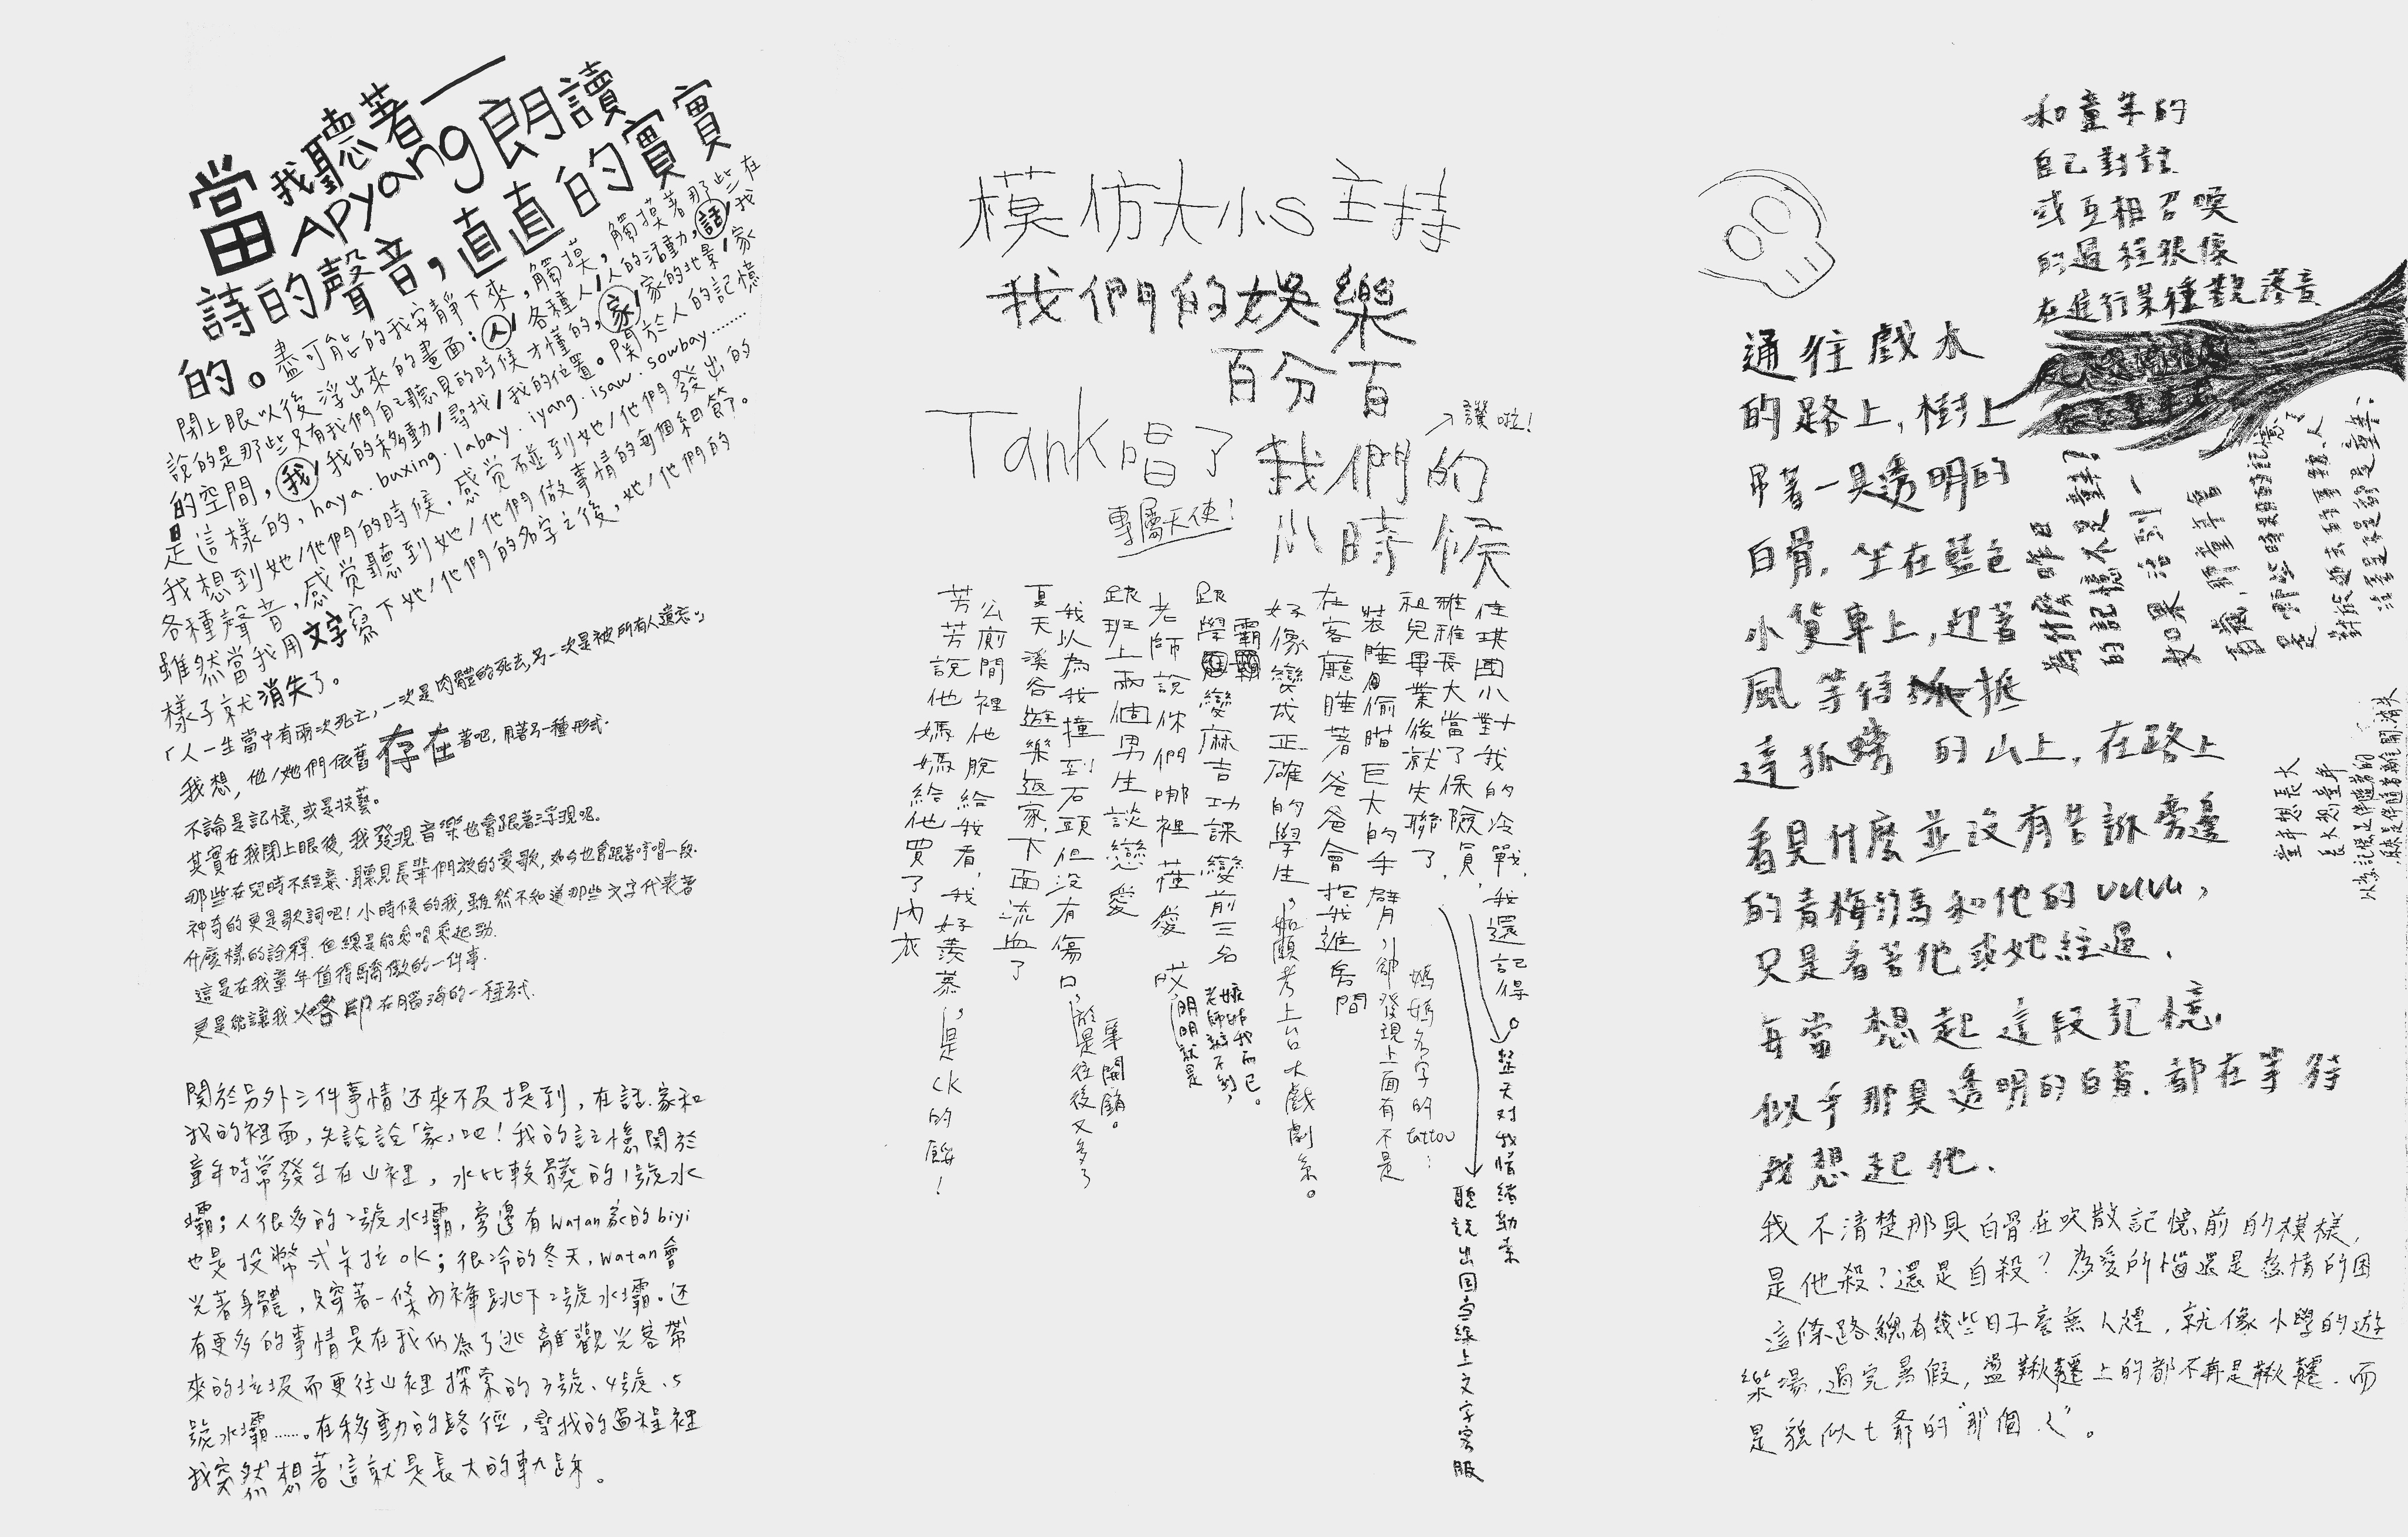 當我聽著一
APyang朗讀
詩的聲音，直直的實實
的。盡可能的我安靜下來，觸摸，觸摸著那些在
閉上眼以後浮出來的畫面：人/各種人/人的活動，話/我
說的是那些只有我們自己聽見的時候才懂的，家/家的地景/家
的空間，我/我的移動/尋找/我的位置。關於人的記憶
是這樣的，haya．buxing．labay．iyang．isaw．sowbay……
我想到她/他們的時候，感覺碰到她/他們發出的
各種聲音，感覺聽到她/他們做事情的每個細節。
雖然當我用文字寫下她/他們的名字之後，她/他們的
樣子就消失了。
「人一生當中有兩次死亡，一次是肉體的死去，另一次是被所有人遺忘。」
我想，他/她們依舊存在著吧，用著另一種形式．
不論是記憶，或是技藝。
其實在我閉上眼後，我發現音樂也會跟著浮現呢。
那些在兒時不經意．聽見長輩們放的愛歌，如今也會跟著哼唱一段．
神奇的更是歌詞吧！小時候的我，雖然不知道那些文字代表著
什麼樣的詮釋．但總是能愈唱愈起勁．
這是在我童年值得驕傲的一件事．
更是能讓我烙印在腦海的一種方式．
關於另外三件事情還來不及提到，在話．家和
我的裡面，先說說「家」吧！我的記憶關於
童年時常發生在山裡，水比較髒的1號水
壩；人很多的2號水壩，旁邊有watan家的biyi
也是投幣式卡拉OK；很冷的冬天，watan會
光著身體，只穿著一條內褲跳下2號水壩。还
有更多的事情是在我们為了逃離觀光客帶
來的垃圾而更往山裡探索的3號、4號、5
號水壩……。在移動的路徑，尋找的過程裡
我突然想著這就是長大的軌跡。
模仿大小S主持
我們的娛樂
百分百
Tank唱了
專屬天使！
我們的
小時候
讚啦！
佳琪國小對我的冷戰，我還記得。整天对我情緒勒索
雅雅長大當了保險員，
聽說出国当線上文字客服
祖兒畢業後就失聯了，
裝睡偷瞄巨大的手臂，卻發現上面有不是
媽媽名字的tattoo：
在客廳睡著爸爸會抱我進房間
好像變成正確的學生，如願考上台大戲劇系。
跟學霸變麻吉功課變前三名
老師說你們哪裡在愛 哎，明明就是
老師辦不到，
嫉妒我而已。
跟班上兩個男生談戀愛
我以為我撞到石頭但沒有傷口，於是往後又多了
一筆開銷。
夏天溪谷遊樂返家，下面流血了
公廁間裡他脫給我看，我好羨慕，是CK的欸！
芳芳說他媽媽給他買了內衣
和童年的
自己對話
或互相召喚
的過程很像
在進行某種觀落音
通往戲水
的路上，樹上
吊著一具透明的
白骨．坐在藍色
小貨車上，迎著
風等待抵
達狐螃的山上，在路上
看見什麼並沒有告訴旁邊
的青梅竹馬和他的vuvu，
只是看著他或她經過．
每當想起這段記憶，
似乎那具透明的白骨．都在等待
我想起他．
我不清楚那具白骨在吹散記憶前的模樣，
是他殺？還是自殺？為愛所惱還是為情所困
這條路總有幾些日子毫無人煙．就像小學的遊
樂場，過完暑假，盪鞦韆上的都不再是鞦韆．而
是貌似七爺的“那個人”。
為什麼昨日
的記憶不是童年？
如果活到一
百歲，那童年會
是哪些時期的記憶？
對於逝去的事物、人
活著是不是都是童年：
童年想長大
長大想童年